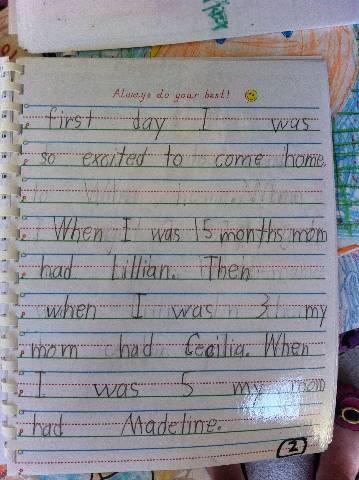 Always do your best!
first day I was
so excited to come home.
When I was 15 months mom
had Lillian. Then
when I was 3 my
mom had Cecilia. When
I was 5 my mom
had Madeline.
2